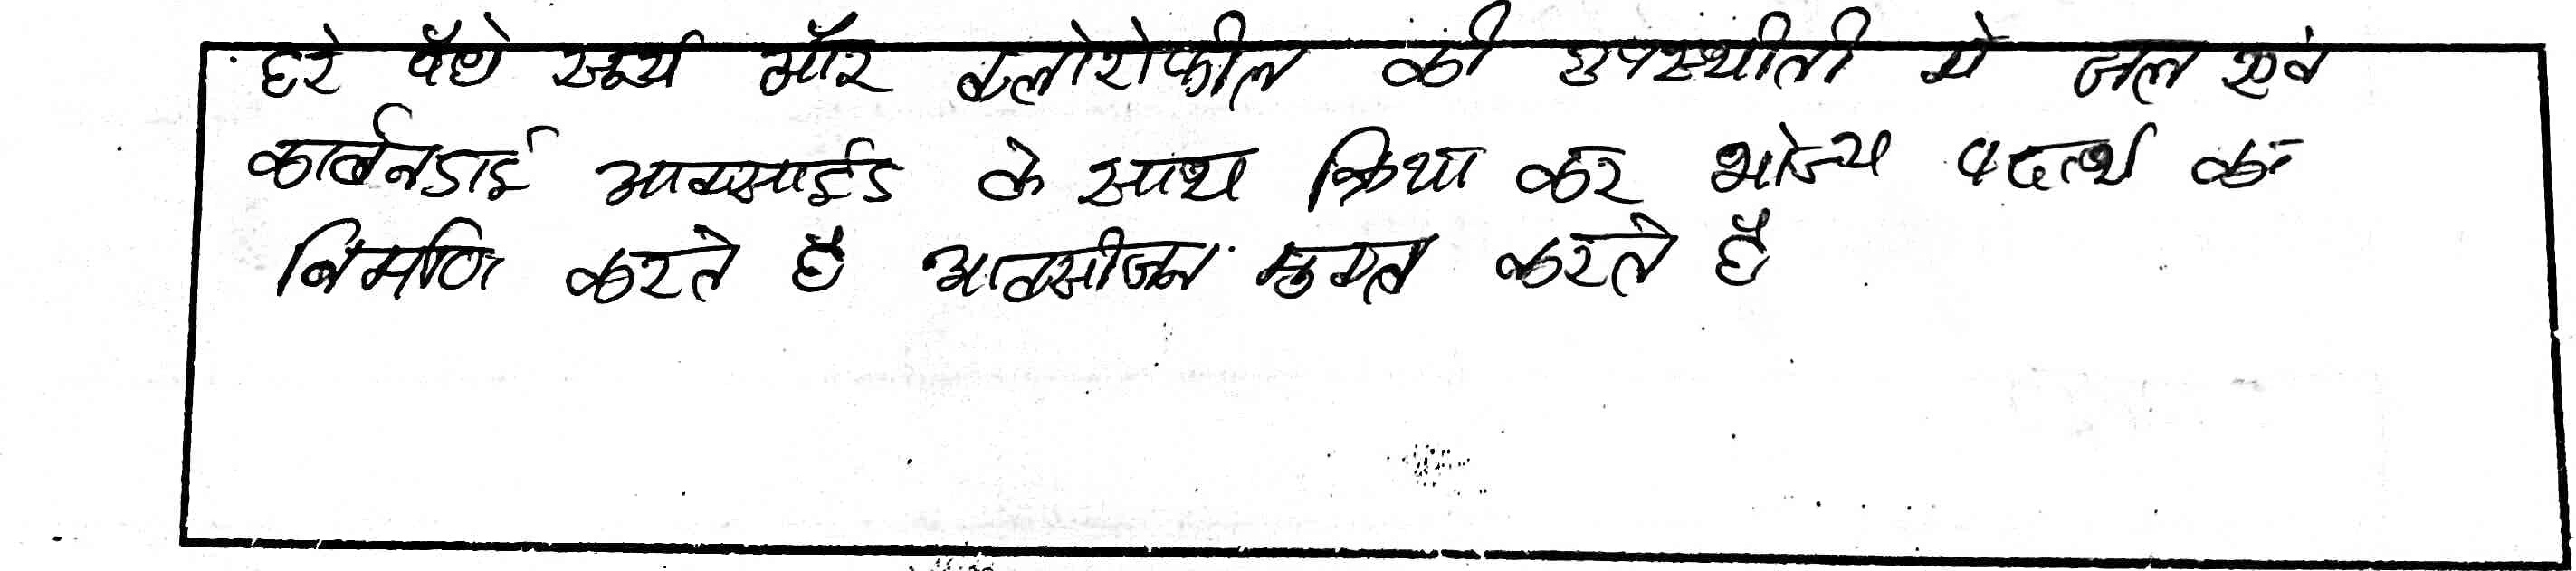 हरे पौधे सूर्य और क्लोरोफील की उपस्थीती मे जल एवं
कार्बनडाई आक्साईड के साथ क्रिया कर भोज्य पदार्थ का
निर्माण करते है आक्सीजन मुक्त करते है